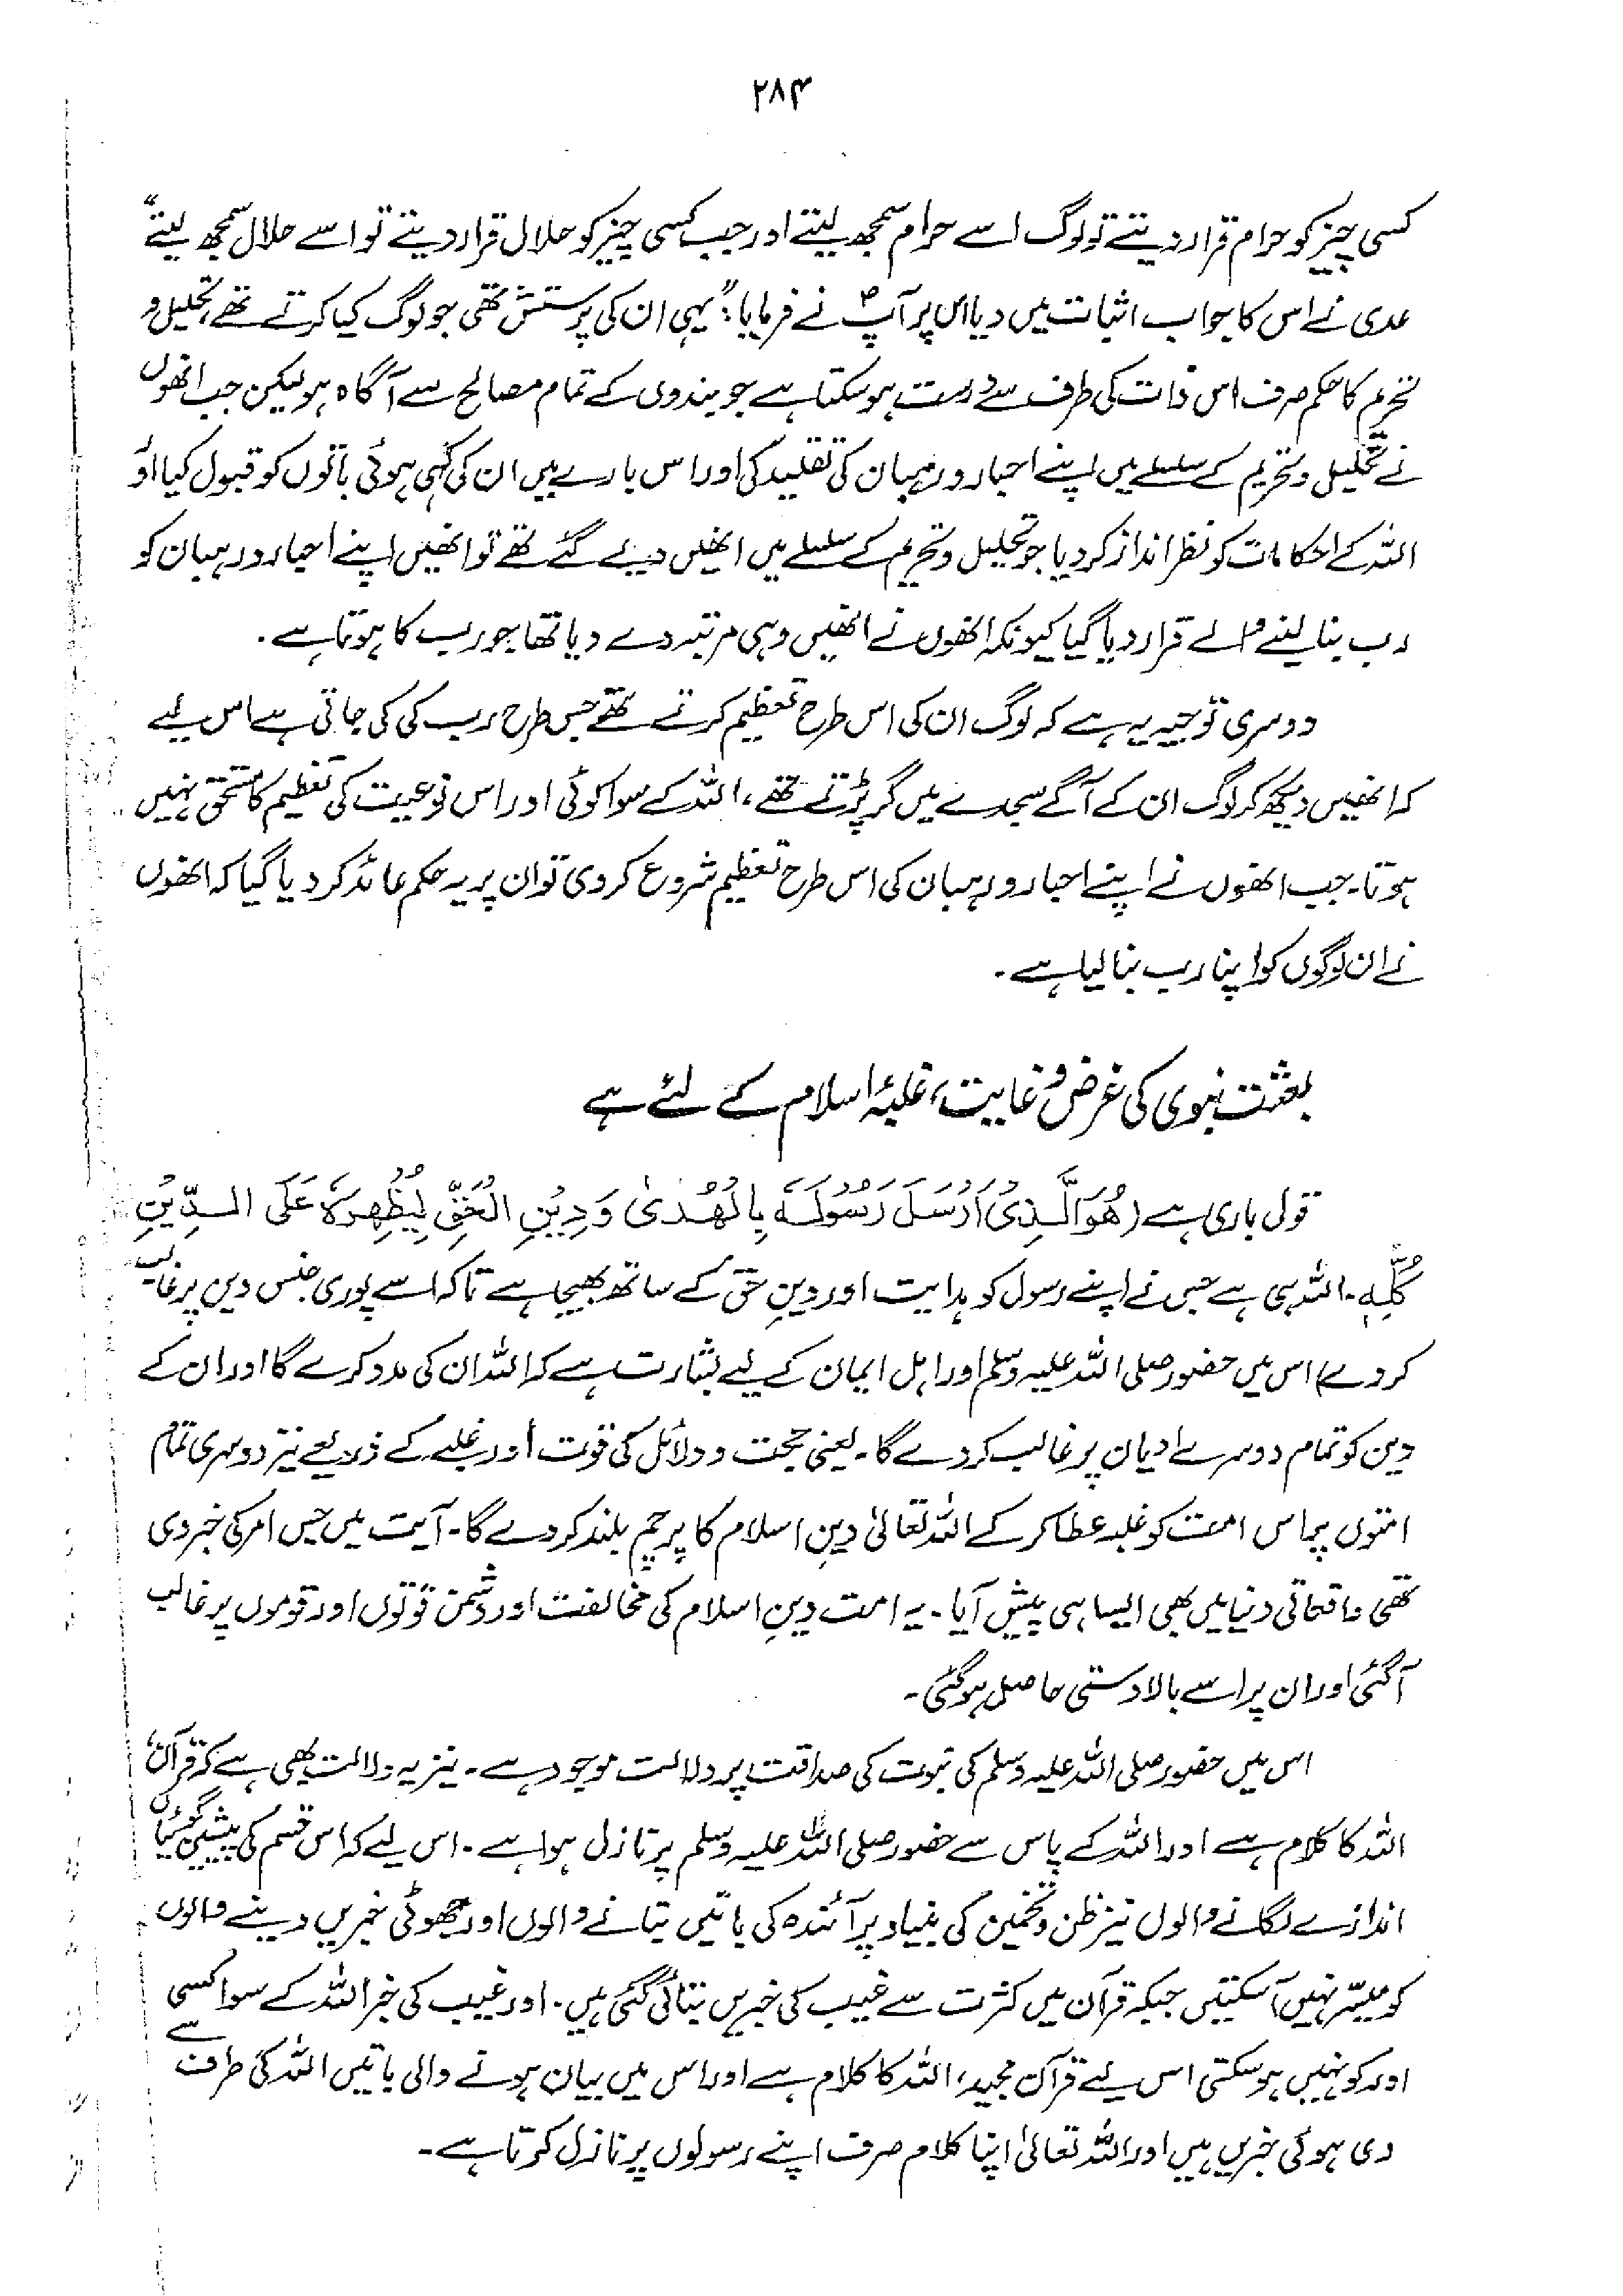 ۲۸۴
کسی چیز کو حرام قرار دیتے تو لوگ اسے حرام سمجھ لیتے اور جب کسی چیز کو حلال قرار دیتے تو اسے حلال سمجھ لیتے"
عدی نے اس کا جواب اثبات میں دیا اس پر آپؐ نے فرمایا: "یہی ان کی پرستش تھی جو لوگ کیا کرتے تھے، تحلیل و
تحریم کا حکم صرف اس ذات کی طرف سے درست ہو سکتا ہے جو بندوں کے تمام مصالح سے آگاہ ہو لیکن جب انھوں
نے تحلیل و تحریم کے سلسلے میں اپنے احبار و رہبان کی تقلید کی اور اس بارے میں ان کی کہی ہوئی باتوں کو قبول کیا اور
اللہ کے احکامات کو نظر انداز کر دیا جو تحلیل و تحریم کے سلسلے میں انھیں دیے گئے تھے تو انھیں اپنے احبار و رہبان کو
رب بنا لینے والے قرار دیا گیا کیونکہ انھوں نے انھیں وہی مرتبہ دے دیا تھا جو رب کا ہوتا ہے۔
دوسری توجیہ یہ ہے کہ لوگ ان کی اس طرح تعظیم کرتے تھے جس طرح رب کی کی جاتی ہے اس لیے
کہ انھیں دیکھ کر لوگ ان کے آگے سجدے میں گر پڑتے تھے، اللہ کے سوا کوئی اور اس نوعیت کی تعظیم کا مستحق نہیں
ہوتا۔ جب انھوں نے اپنے احبار و رہبان کی اس طرح تعظیم شروع کر دی تو ان پر یہ حکم عائد کر دیا گیا کہ انھوں
نے ان لوگوں کو اپنا رب بنا لیا ہے۔
بعثت نبوی کی غرض و غایت، غلبۂ اسلام کے لئے ہے
قول باری ہے (هُوَ الَّذِیْ اَرْسَلَ رَسُوْلَهٗ بِالْهُدٰی وَ دِیْنِ الْحَقِّ لِیُظْهِرَهٗ عَلَی الدِّیْنِ
کُلِّهٖ۔ اللہ ہی ہے جس نے اپنے رسول کو ہدایت اور دینِ حق کے ساتھ بھیجا ہے تاکہ اسے پوری جنس دین پر غالب
کر دے) اس میں حضور صلی اللہ علیہ وسلم اور اہل ایمان کے لیے بشارت ہے کہ اللہ ان کی مدد کرے گا اور ان کے
دین کو تمام دوسرے ادیان پر غالب کر دے گا۔ یعنی حجت و دلائل کی قوت اور غلبے کے ذریعے نیز دوسری تمام
امتوں پر اس امت کو غلبہ عطا کر کے اللہ تعالیٰ دینِ اسلام کا پرچم بلند کر دے گا۔ آیت میں جس امر کی خبر دی
تھی واقعاتی دنیا میں بھی ایسا ہی پیش آیا۔ یہ امت دینِ اسلام کی مخالفت اور دشمن قوتوں اور قوموں پر غالب
آگئی اور ان پر اسے بالادستی حاصل ہوگئی۔
اس میں حضور صلی اللہ علیہ وسلم کی نبوت کی صداقت پر دلالت موجود ہے۔ نیز یہ دلالت بھی ہے کہ قرآن،
اللہ کا کلام ہے اور اللہ کے پاس سے حضور صلی اللہ علیہ وسلم پر نازل ہوا ہے۔ اس لیے کہ اس قسم کی پیشین گوئیاں
اندازے لگانے والوں نیز ظن و تخمین کی بنیاد پر آئندہ کی باتیں بتانے والوں اور جھوٹی خبریں دینے والوں
کو میسّر نہیں آسکتیں جبکہ قرآن میں کثرت سے غیب کی خبریں بتائی گئی ہیں۔ اور غیب کی خبر اللہ کے سوا کسی
اور کو نہیں ہو سکتی اس لیے قرآن مجید، اللہ کا کلام ہے اور اس میں بیان ہونے والی باتیں اللہ کی طرف سے
دی ہوئی خبریں ہیں اور اللہ تعالیٰ اپنا کلام صرف اپنے رسولوں پر نازل کرتا ہے۔